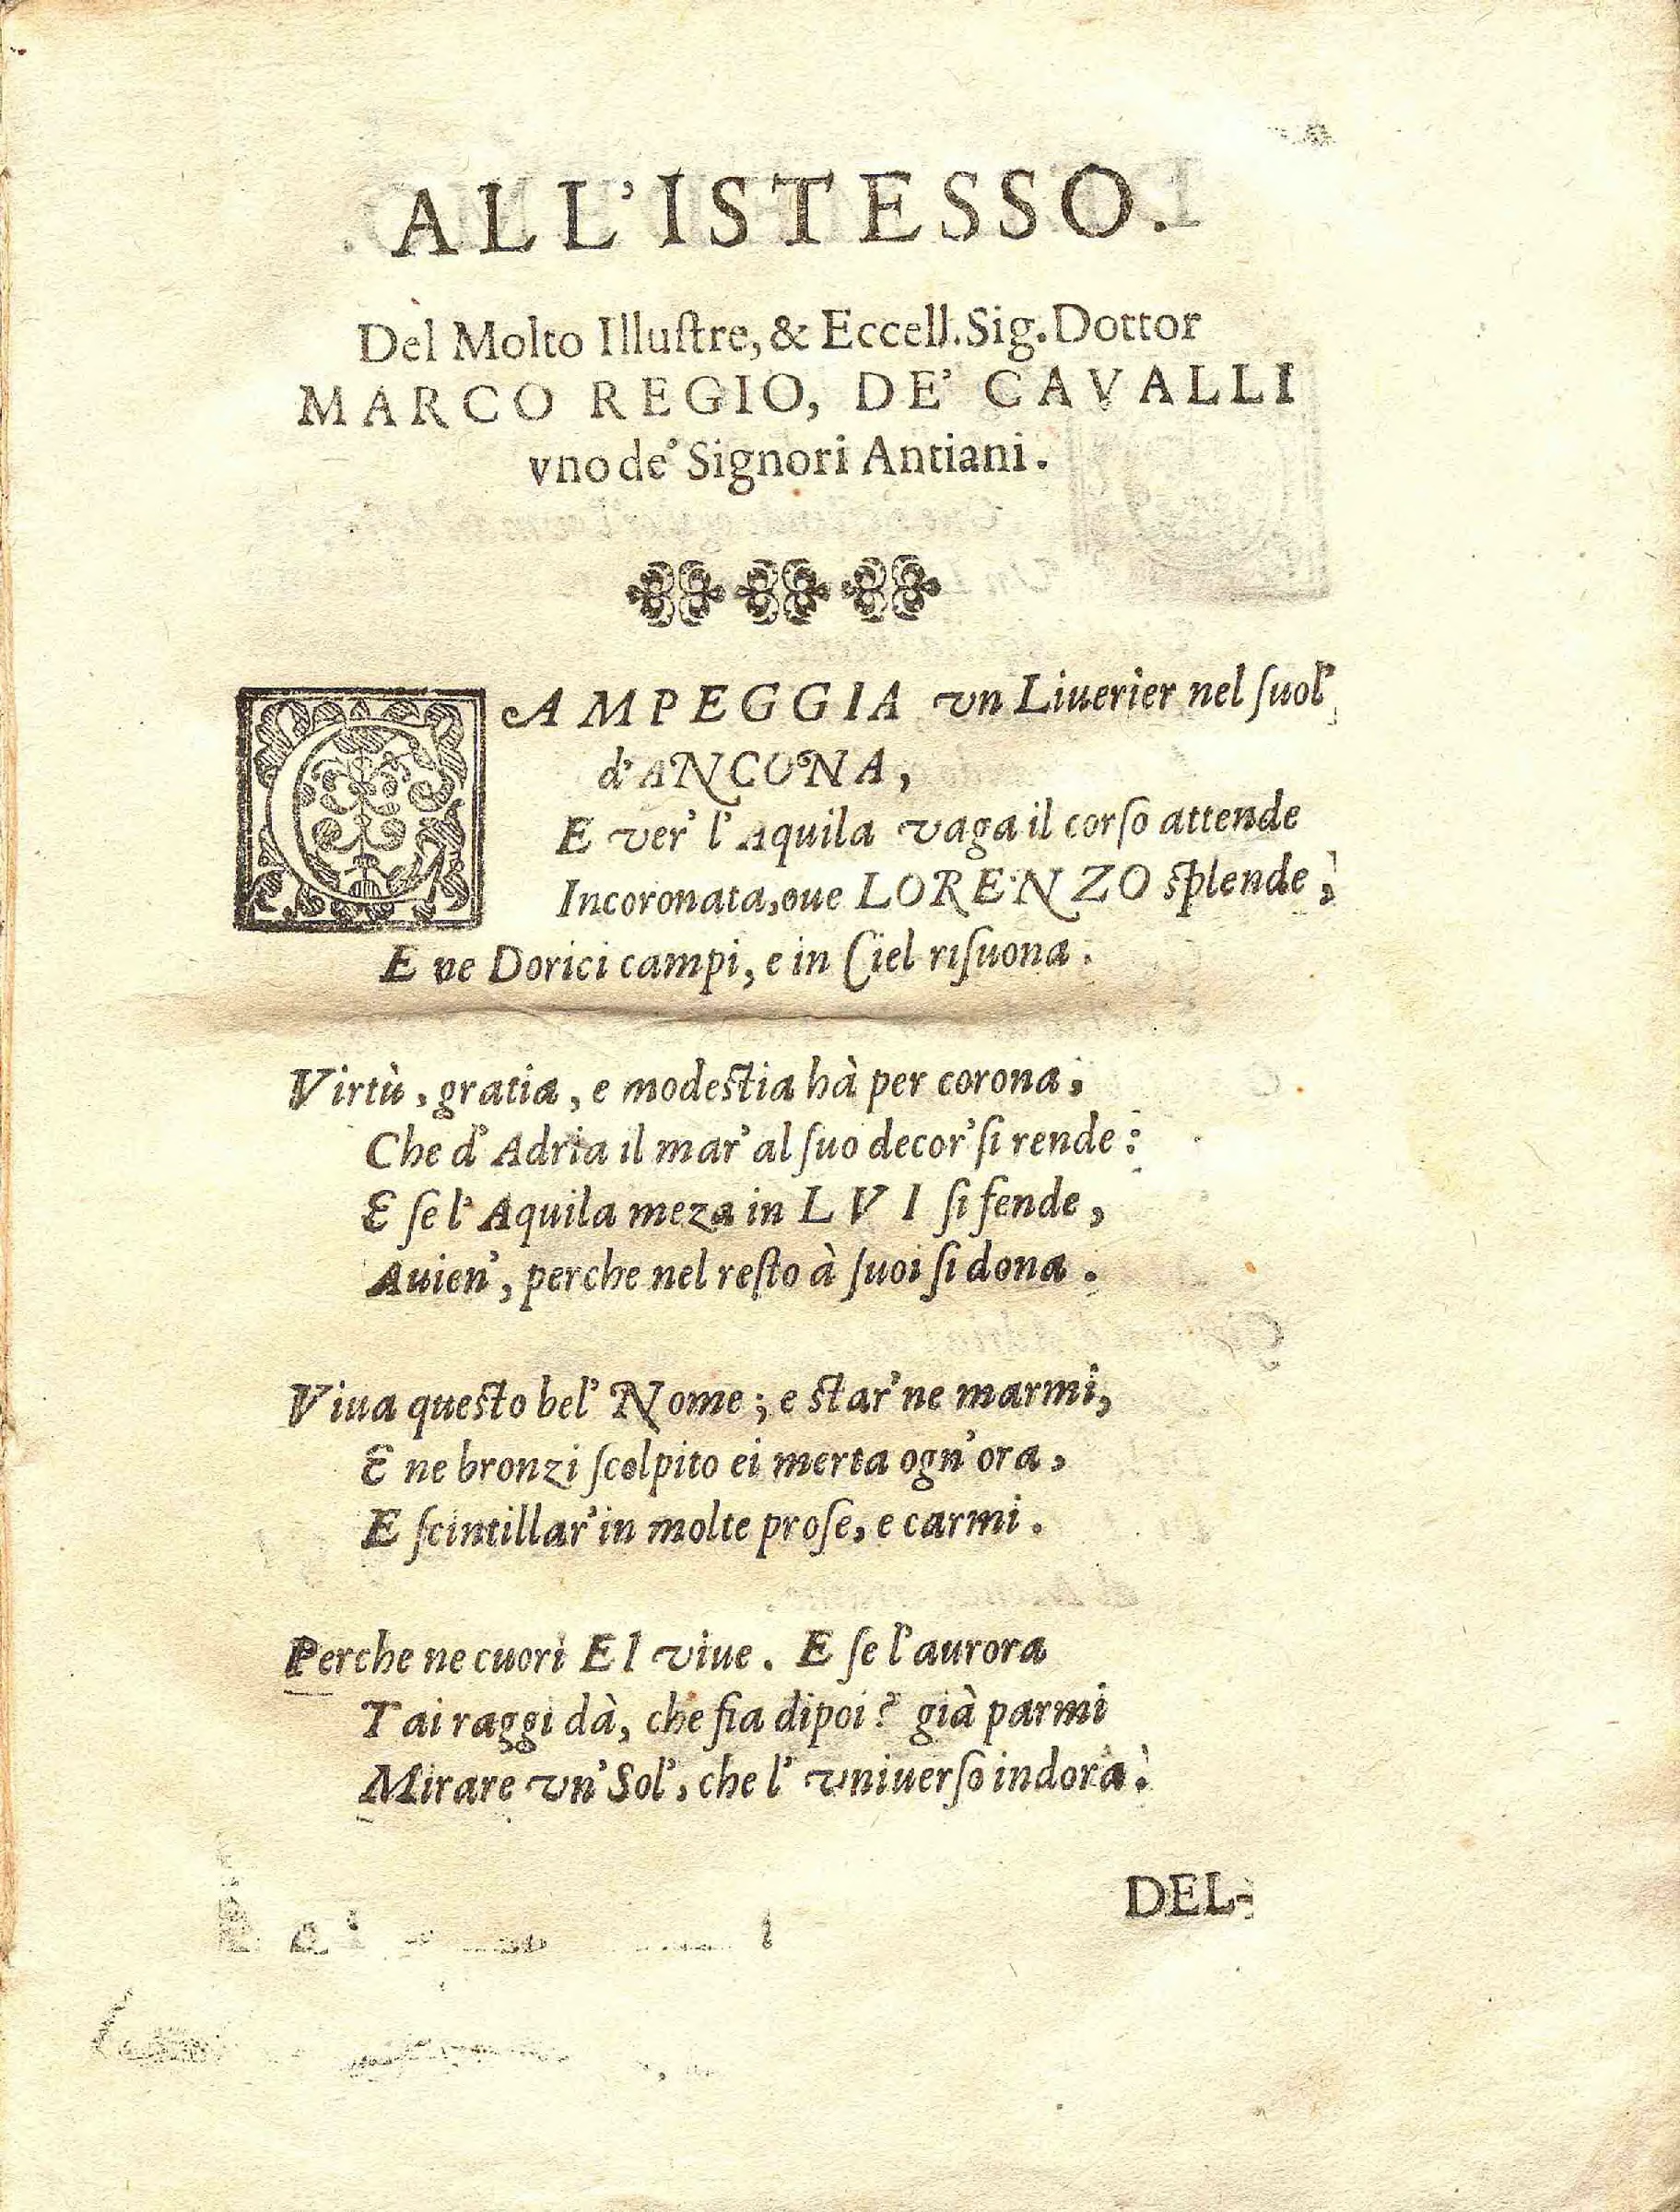 ALL'ISTESSO.
Del Molto Illuſtre, & Eccell. Sig. Dottor
MARCO REGIO, DE' CAVALLI
vno de' Signori Antiani.
CAMPEGGIA vn Liuerier nel ſuol'
d'ANCONA,
E ver' l'Aquila vaga il corſo attende
Incoronata, oue LORENZO ſplende,
E ne Dorici campi, e in Ciel riſuona.
Virtù, gratia, e modeſtia hà per corona,
Che d'Adria il mar' al ſuo decor' ſi rende:
E ſe l'Aquila meza in LVI ſi fende,
Auien', perche nel reſto à ſuoi ſi dona.
Viua queſto bel' Nome; e ſtar' ne marmi,
E ne bronzi ſcolpito ei merta ogn'ora,
E ſcintillar' in molte proſe, e carmi.
Perche ne cuori EI viue. E ſe l'aurora
Tai raggi dà, che fia dipoi? già parmi
Mirare vn' Sol', che l'vniuerſo indora.
DEL-